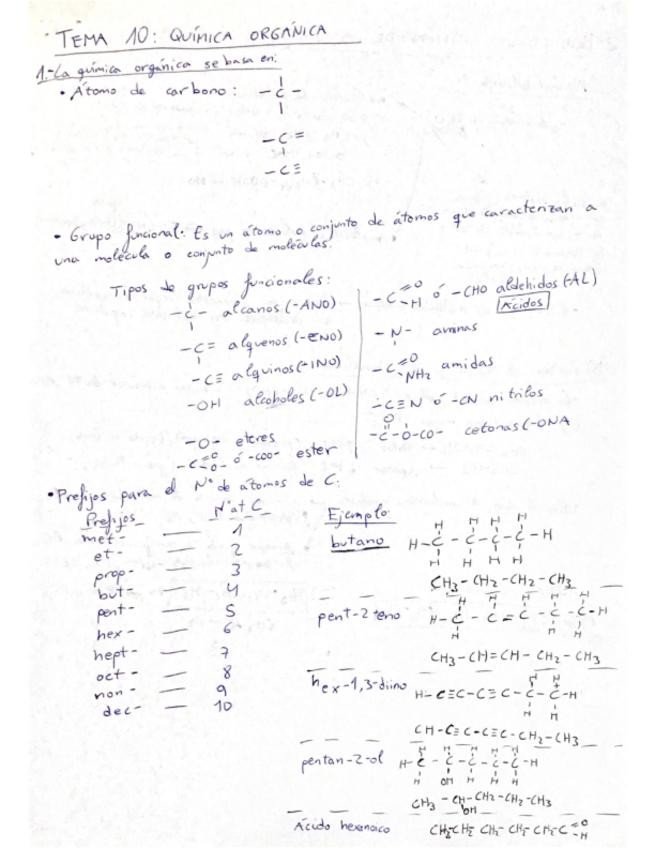 TEMA 10: QUÍMICA ORGÁNICA
1.-La química orgánica se basa en:
• Átomo de carbono: -C-
-C=
-C≡
• Grupo funcional: Es un átomo o conjunto de átomos que caracterizan a
una molécula o conjunto de moléculas.
Tipos de grupos funcionales:
-C- alcanos (-ANO)
-C= alquenos (-ENO)
-C≡ alquinos (-INO)
-OH alcoholes (-OL)
-O- eteres
-C=O-O- ó -COO- ester
-C=O-H ó -CHO aldehidos (-AL)
Ácidos
-N- aminas
-C=O NH2 amidas
-C≡N ó -CN nitrilos
-C-O-CO- cetonas (-ONA
• Prefijos para el Nº de átomos de C:
Prefijos Nº at C
met- — 1
et- — 2
prop- — 3
but- — 4
pent- — 5
hex- — 6
hept- — 7
oct- — 8
non- — 9
dec- — 10
Ejemplo:
butano H-C-C-C-C-H
CH3-CH2-CH2-CH3
pent-2-eno H-C-C=C-C-C-H
CH3-CH=CH-CH2-CH3
hex-1,3-diino H-C≡C-C≡C-C-C-H
CH-C≡C-C≡C-CH2-CH3
pentan-2-ol H-C-C-C-C-C-H
OH
CH3-CH-CH2-CH2-CH3
OH
Ácido hexanoico